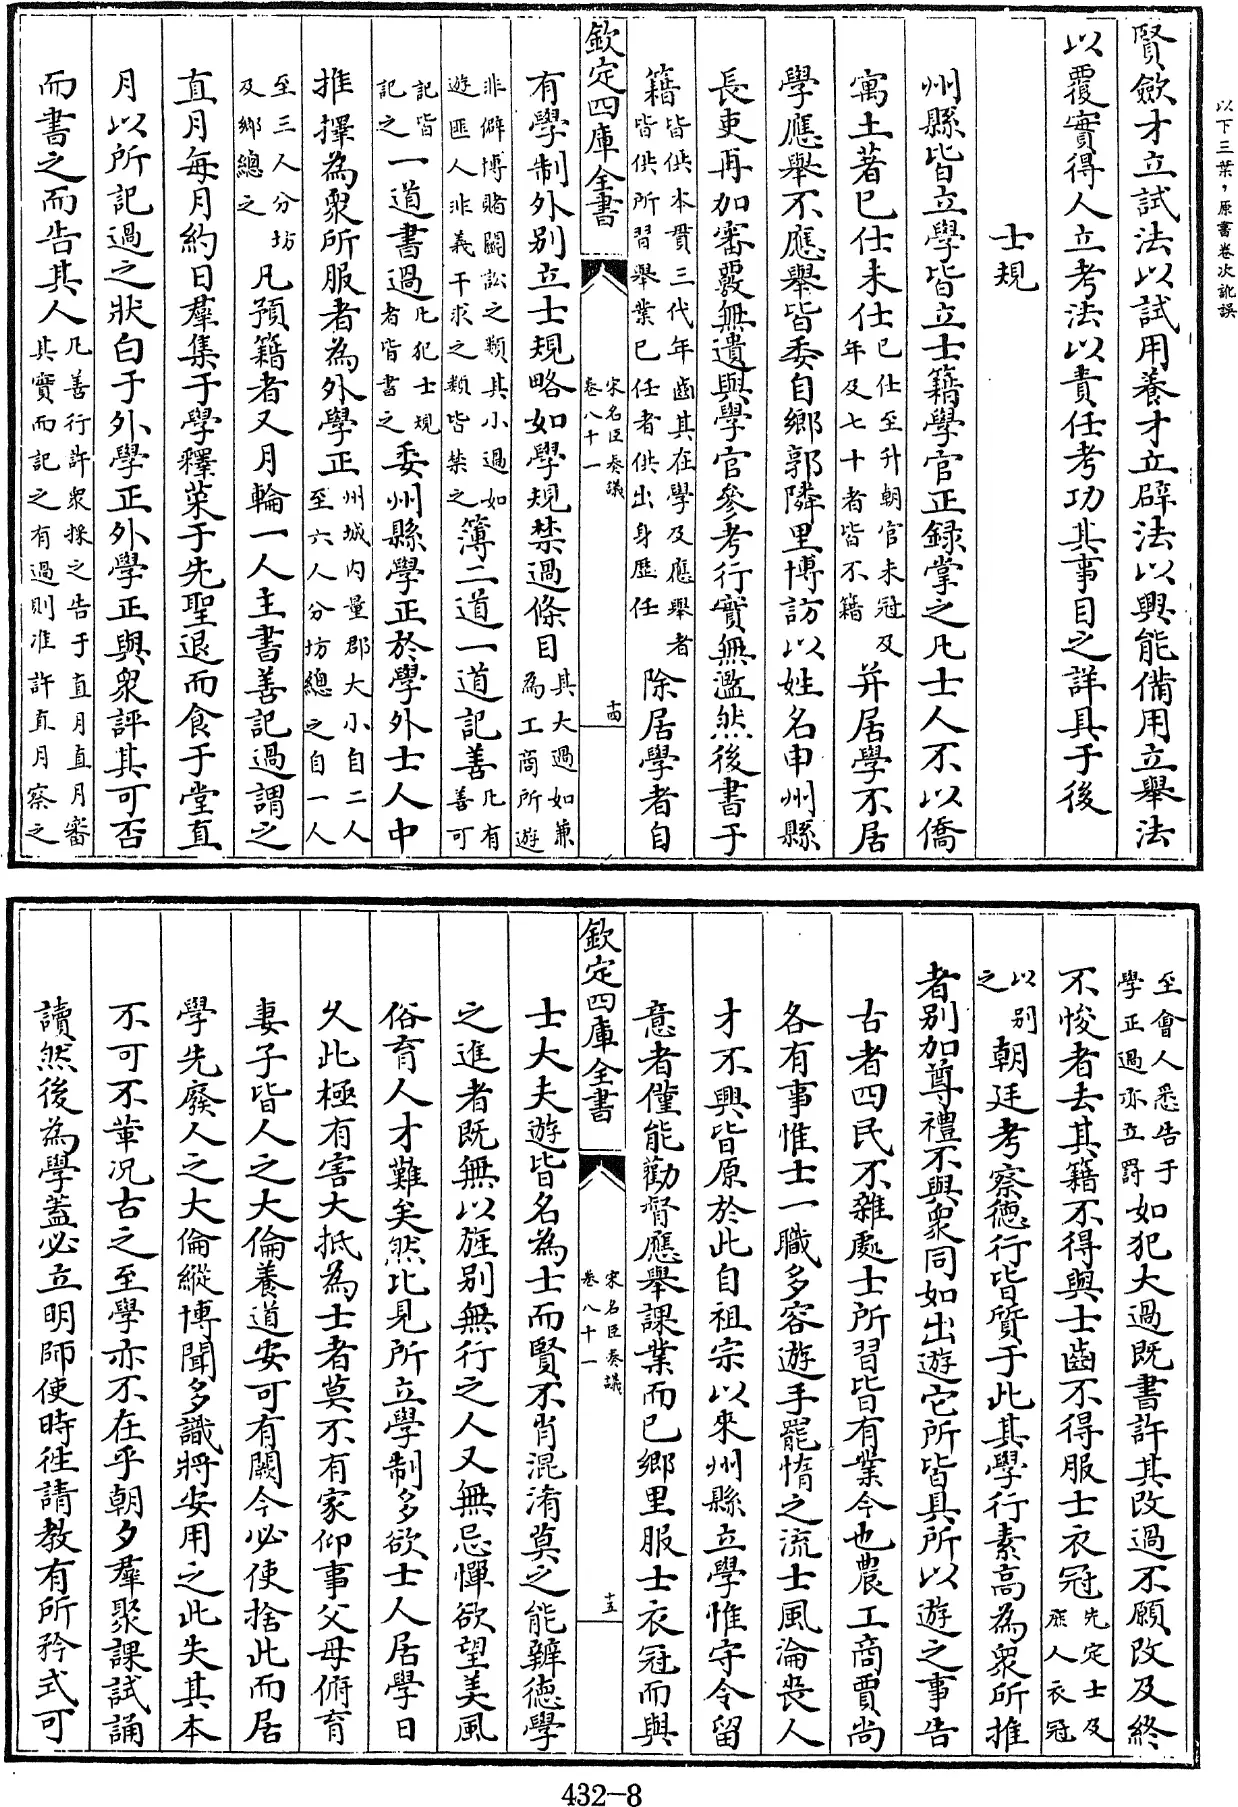 以下三葉，原書卷次訛誤
賢斂才立試法以試用養才立辟法以興能備用立舉法
以覆實得人立考法以責任考功其事目之詳具于後
士規
州縣皆立學皆立士籍學官正録掌之凡士人不以僑
寓土著已仕未仕已仕至升朝官未冠及年及七十者皆不籍并居學不居
學應舉不應舉皆委自鄉郭隣里博訪以姓名申州縣
長吏再加審覈無遺與學官參考行實無濫然後書于
籍皆供本貫三代年齒其在學及應舉者皆供所習舉業已任者供出身歴任除居學者自
欽定四庫全書
宋名臣奏議
卷八十一
十四
有學制外别立士規略如學規禁過條目其大過如兼為工商所遊
非僻博賭鬭訟之類其小過如遊匪人非義干求之類皆禁之簿二道一道記善凡有善可
記皆記之一道書過凡犯士規者皆書之委州縣學正於學外士人中
推擇為衆所服者為外學正州城内量郡大小自二人至六人分坊總之自一人
至三人分坊及鄉總之凡預籍者又月輪一人主書善記過謂之
直月每月約日羣集于學釋菜于先聖退而食于堂直
月以所記過之狀白于外學正外學正與衆評其可否
而書之而告其人凡善行許衆採之告于直月直月審其實而記之有過則准許直月察之
至會人悉告于學正過亦立罸如犯大過既書許其改過不願改及終
不悛者去其籍不得與士齒不得服士衣冠先定士及庶人衣冠
以别之朝廷考察德行皆質于此其學行素高為衆所推
者别加尊禮不與衆同如出遊它所皆具所以遊之事告
古者四民不雜處士所習皆有業今也農工商賈尚
各有事惟士一職多容遊手罷惰之流士風淪喪人
才不興皆原於此自祖宗以來州縣立學惟守令留
意者僅能勸督應舉課業而已鄉里服士衣冠而與
欽定四庫全書
宋名臣奏議
卷八十一
十五
士大夫遊皆名為士而賢不肖混淆莫之能辨德學
之進者既無以旌别無行之人又無忌憚欲望美風
俗育人才難矣然比見所立學制多欲士人居學日
久此極有害大抵為士者莫不有家仰事父母俯育
妻子皆人之大倫養道安可有闕今必使捨此而居
學先廢人之大倫縱博聞多識將安用之此失其本
不可不革况古之至學亦不在乎朝夕羣聚課試誦
讀然後為學蓋必立明師使時徃請教有所矜式可
432-8